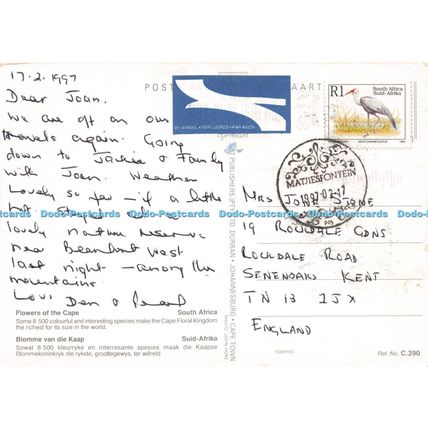 17.2.1997
Dear Joan,
We are off on our
travels again. Going
down to Jackie & Family
with Joan. Weather
Lovely so far – if a little
hot. Stayed at a
lovely nature reserve
near Beaufort West
last night – among the
mountains.
Love Den &
Flowers of the Cape South Africa
Some 8 500 colourful and interesting species make the Cape Floral Kingdom
the richest for its size in the world.
Blomme van die Kaap Suid-Afrika
Sowat 8 500 kleurryke en interessante spesies maak die Kaapse
Blommekoninkryk die rykste, groottegewys, ter wêreld.
POST
KAART
BY AIRMAIL • PER LUGPOS • PAR AVION
COPYRIGHT
PUBLISHERS (PTY) LTD DURBAN • JOHANNESBURG • CAPE TOWN
R1 South Africa
Suid-Afrika
MATJIESFONTEIN
1997-02-17
MRS JOAN STONE
19 ROUNDALE GDNS
ROCKDALE ROAD
SEVENOAKS KENT
TN 13 1JX
ENGLAND
Ref. No. C.390
Dodo-Postcards Dodo-Postcards Dodo-Postcards Dodo-Postcards Dodo-Postcards